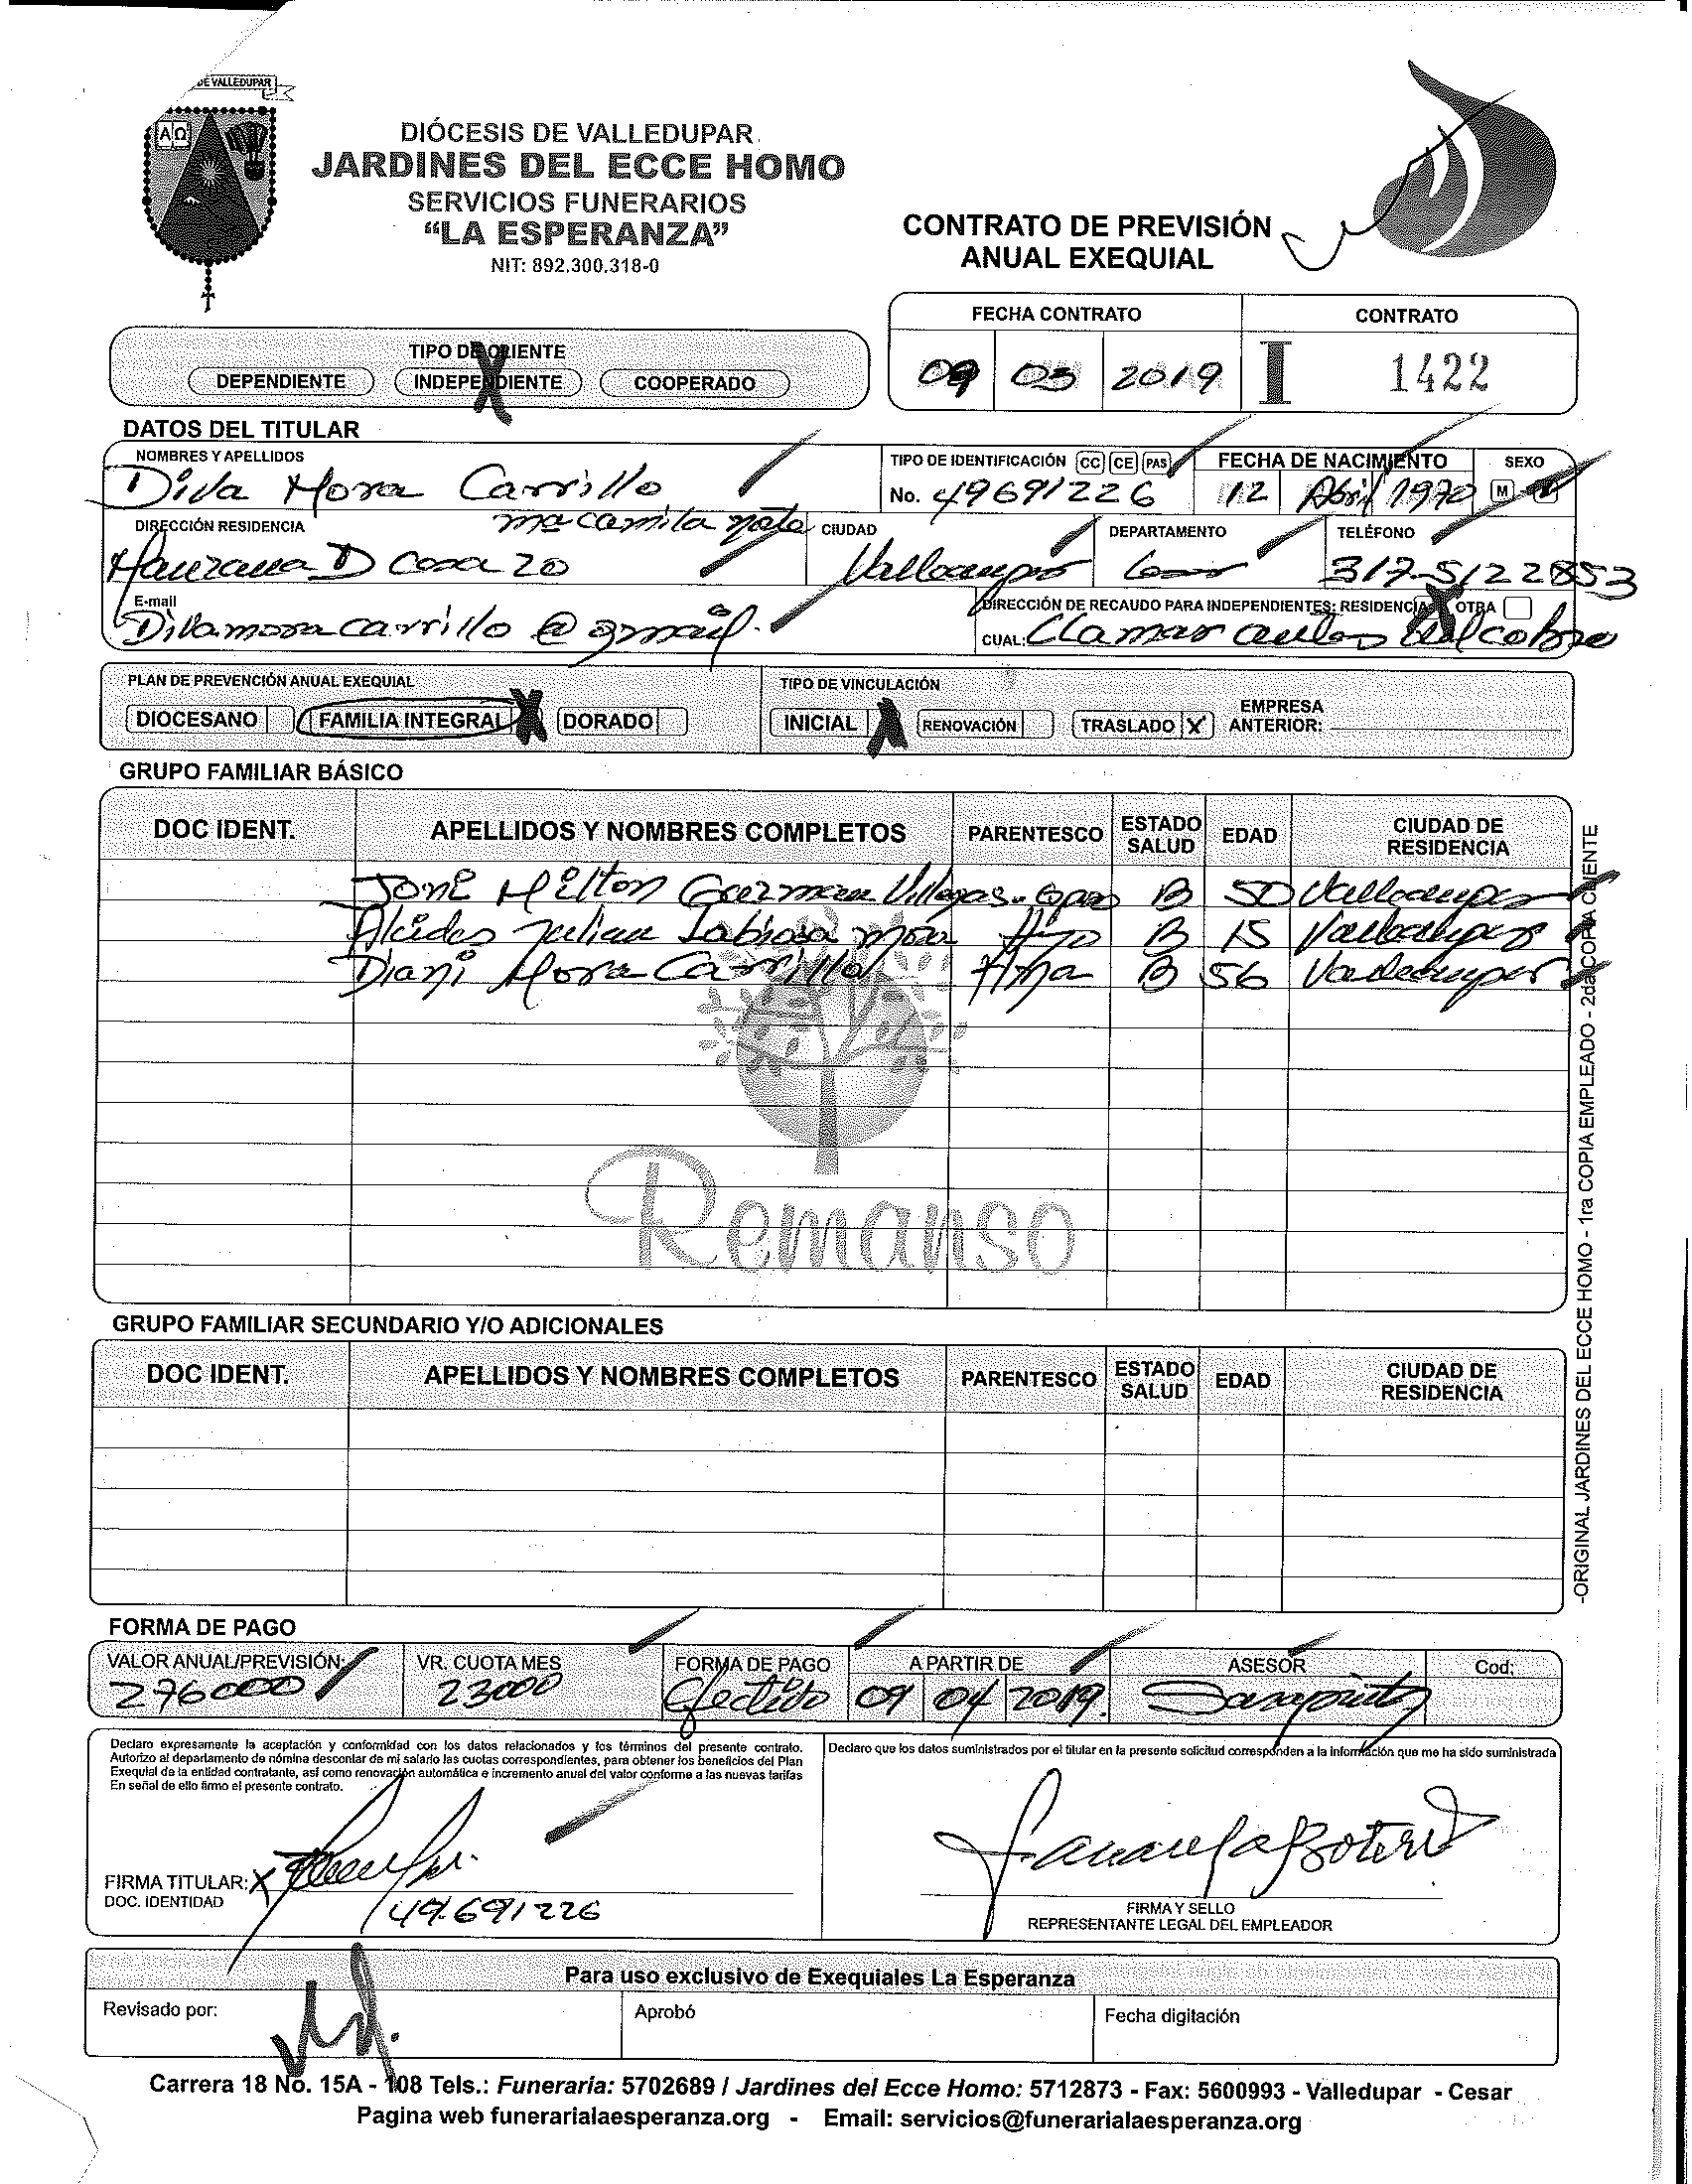 DE VALLEDUPAR
A Ω
DIÓCESIS DE VALLEDUPAR
JARDINES DEL ECCE HOMO
SERVICIOS FUNERARIOS
“LA ESPERANZA”
NIT: 892.300.318-0
CONTRATO DE PREVISIÓN
ANUAL EXEQUIAL
FECHA CONTRATO CONTRATO
09 03 2019 I 1422
TIPO DE CLIENTE
DEPENDIENTE INDEPENDIENTE COOPERADO
DATOS DEL TITULAR
NOMBRES Y APELLIDOS
Diva Mora Carrillo
TIPO DE IDENTIFICACIÓN CC CE PAS
No. 49691226
FECHA DE NACIMIENTO
12 Abril 1970
SEXO
M
DIRECCIÓN RESIDENCIA
ma camila
Manzana D casa 20
CIUDAD
Valledupar
DEPARTAMENTO
Cesar
TELÉFONO
317-5122853
E-mail
Divamoracarrillo @ gmail.
DIRECCIÓN DE RECAUDO PARA INDEPENDIENTES: RESIDENCIA OTRA
CUAL: Llamar antes
PLAN DE PREVENCIÓN ANUAL EXEQUIAL
DIOCESANO FAMILIA INTEGRAL X DORADO
TIPO DE VINCULACIÓN
INICIAL X RENOVACIÓN TRASLADO X EMPRESA ANTERIOR:
GRUPO FAMILIAR BÁSICO
DOC IDENT. APELLIDOS Y NOMBRES COMPLETOS PARENTESCO ESTADO SALUD EDAD CIUDAD DE RESIDENCIA
José Milton Guzman Villegas B 50 Valledupar
Alcides Julian mora Hijo B 15 Valledupar
Diani Mora Carrillo Hma B 56 Valledupar
Remanso
GRUPO FAMILIAR SECUNDARIO Y/O ADICIONALES
DOC IDENT. APELLIDOS Y NOMBRES COMPLETOS PARENTESCO ESTADO SALUD EDAD CIUDAD DE RESIDENCIA
-ORIGINAL JARDINES DEL ECCE HOMO - 1ra COPIA EMPLEADO - 2da COPIA CLIENTE
FORMA DE PAGO
VALOR ANUAL/PREVISIÓN: VR. CUOTA MES FORMA DE PAGO A PARTIR DE ASESOR Cod:
276000 23000 Efectivo 09 04 2019.
Declaro expresamente la aceptación y conformidad con los datos relacionados y los términos del presente contrato.
Autorizo al departamento de nómina descontar de mi salario las cuotas correspondientes, para obtener los beneficios del Plan
Exequial de la entidad contratante, así como renovación automática e incremento anual del valor conforme a las nuevas tarifas
En señal de ello firmo el presente contrato.
Declaro que los datos suministrados por el titular en la presente solicitud corresponden a la información que me ha sido suministrada
FIRMA TITULAR: X
DOC. IDENTIDAD
49.691226
FIRMA Y SELLO
REPRESENTANTE LEGAL DEL EMPLEADOR
Para uso exclusivo de Exequiales La Esperanza
Revisado por: Aprobó Fecha digitación
Carrera 18 No. 15A - 108 Tels.: Funeraria: 5702689 / Jardines del Ecce Homo: 5712873 - Fax: 5600993 - Valledupar - Cesar
Pagina web funerarialaesperanza.org - Email: servicios@funerarialaesperanza.org